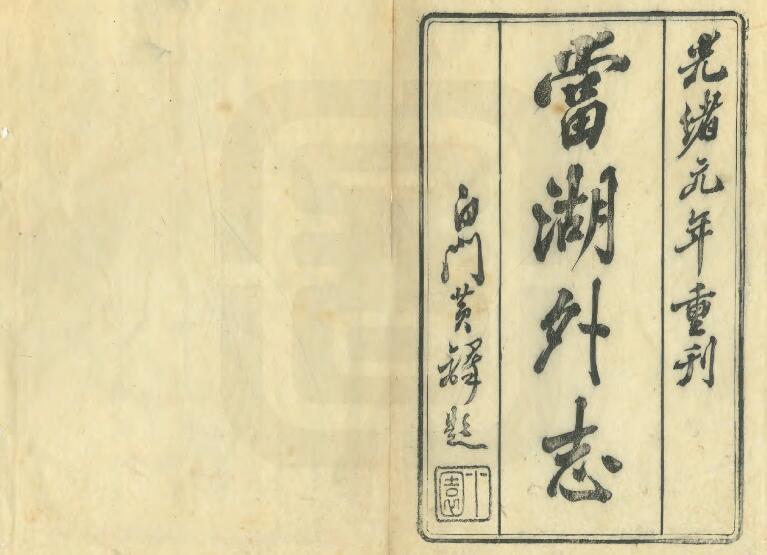 光緒元年重刊
當湖外志
白門黃鐸題